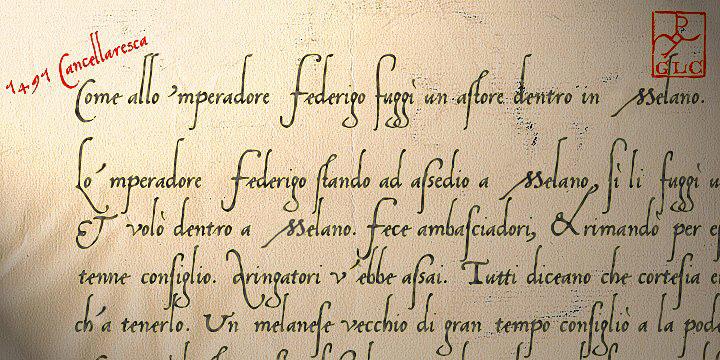 1491 Cancellaresca
GLC
Come allo 'mperadore Federigo fuggì un aſtore dentro in Melano.
Lo 'mperadore Federigo ſtando ad aſſedio a Melano, ſì li fuggì u
Et volò dentro a Melano. Fece ambaſciadori, & rimandò per
tenne conſiglio. Aringatori v'ebbe aſſai. Tutti diceano che corteſia
ch'a tenerlo. Un melaneſe vecchio di gran tempo conſigliò a la pode